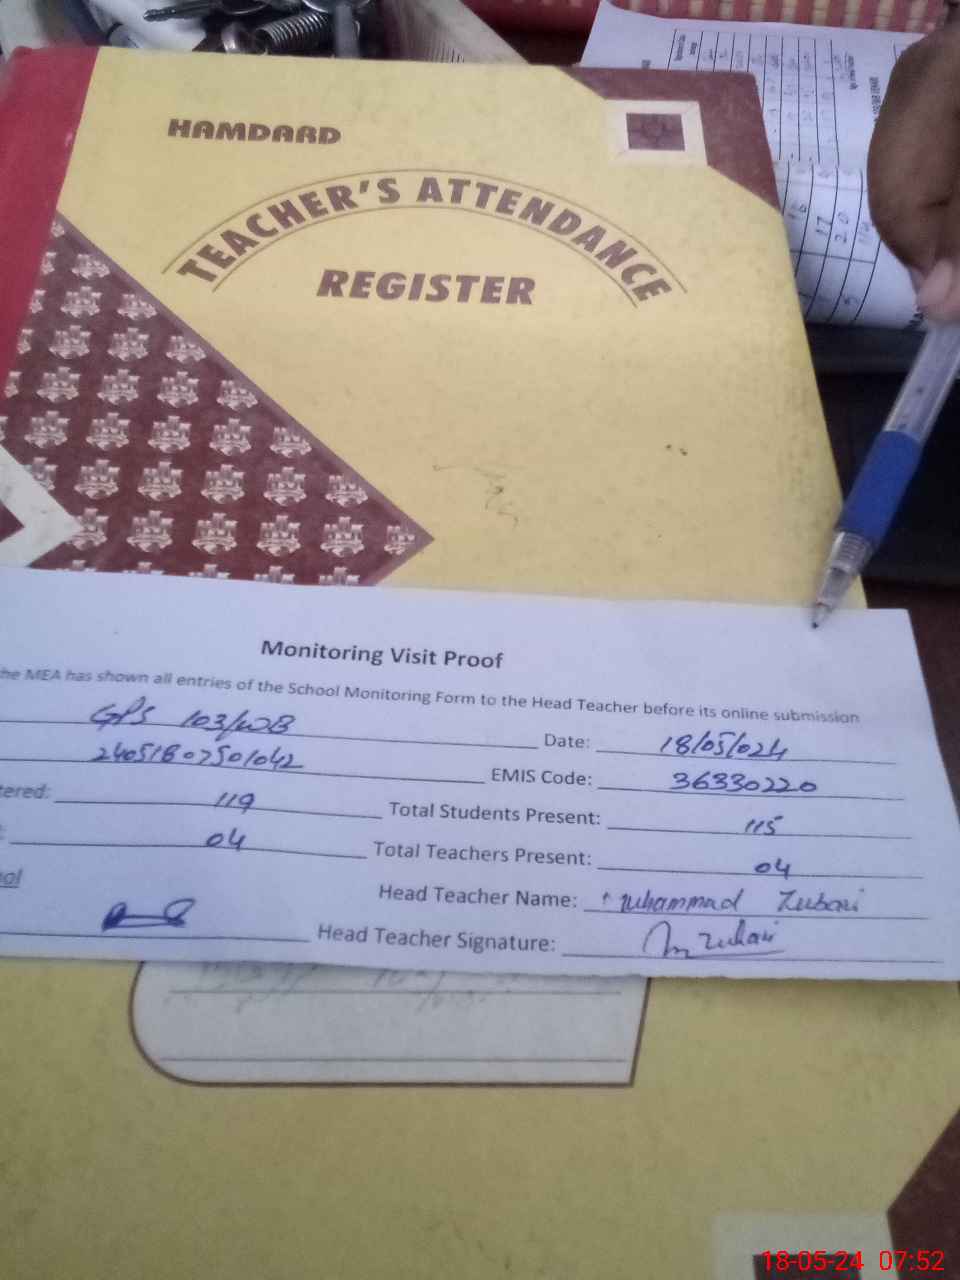 HAMDARD
TEACHER'S ATTENDANCE
REGISTER
Monitoring Visit Proof
he MEA has shown all entries of the School Monitoring Form to the Head Teacher before its online submission
GPS 103/WB Date: 18/05/024
24051807501042 EMIS Code: 36330220
tered: 119 Total Students Present: 115
: 04 Total Teachers Present: 04
ol Head Teacher Name: Muhammad Zubair
Head Teacher Signature: M Zubair
18-05-24 07:52